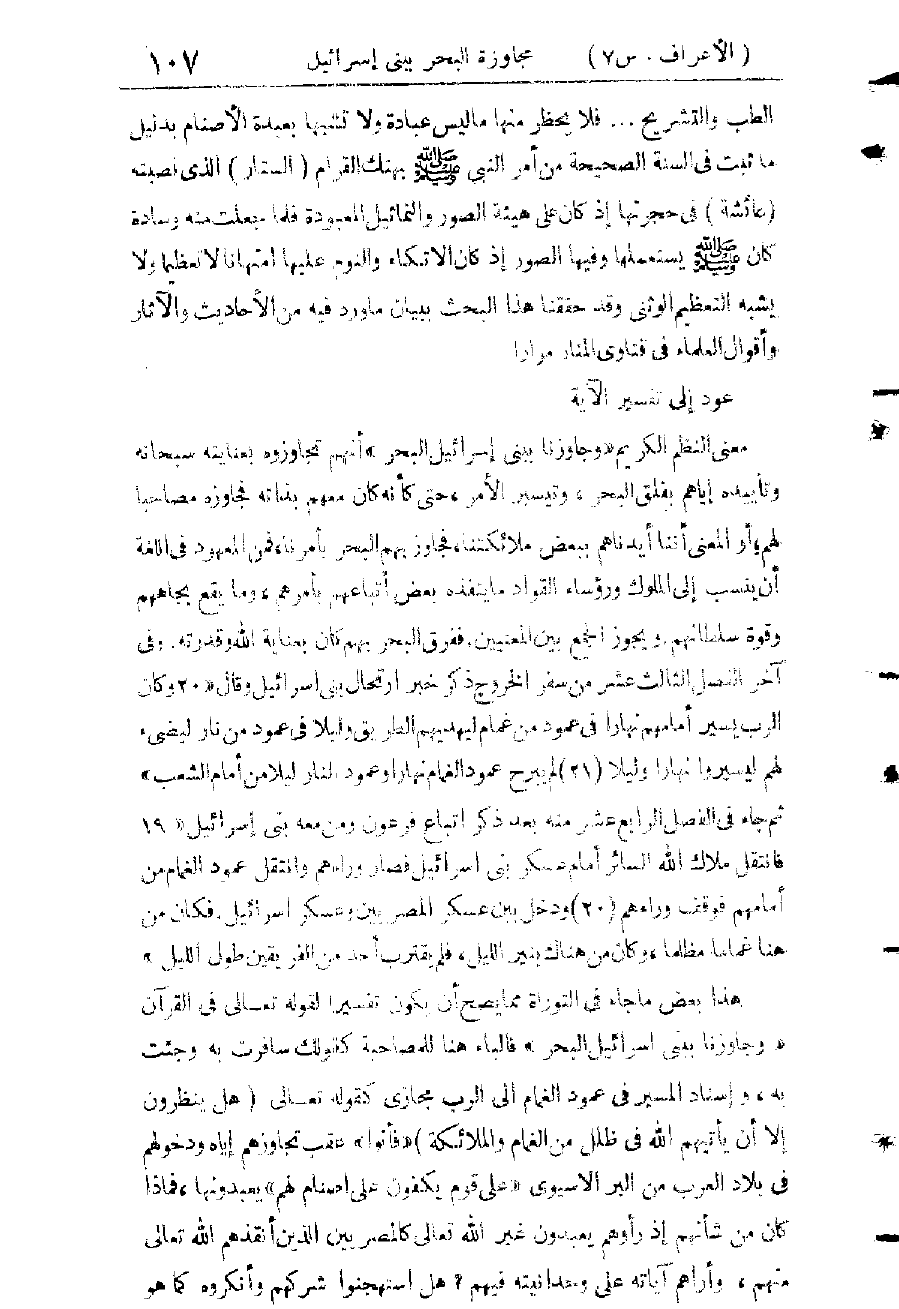 ( الأعراف . س ٧ ) مجاوزة البحر ببنى إسرائيل ١٠٧
الطب والتشريح ... فلا يحظر منها ماليس عبادة ولا تشبها بعبدة الأصنام بدليل
ما ثبت فى السنة الصحيحة من أمر النبي ﷺ بهتك القرام ( الستار ) الذى نصبته
(عائشة ) فى حجرتها إذ كان على هيئة الصور والتماثيل المعبودة فلما جعلت منه وسادة
كان ﷺ يستعملها وفيها الصور إذ كان الاتكاء والنوم عليها امتهانا لا تعظيما ولا
يشبه التعظيم الوثنى وقد حققنا هذا البحث ببيان ماورد فيه من الأحاديث والآثار
وأقوال العلماء فى فتاوى المنار مرارا
عود إلى تفسير الآية
معنى النظم الكريم « وجاوزنا ببنى إسرائيل البحر » أنهم تجاوزوه بعنايته سبحانه
وتأييده إياهم بفلق البحر ، وتيسير الأمر ، حتى كأنه كان معهم بذاته فجاوزه مصاحبا
لهم ، أو المعنى أننا أيدناهم ببعض ملائكتنا ، فجاوز بهم البحر بأمرنا ، فمن المعهود فى اللغة
أن ينسب إلى الملوك ورؤساء القواد ماينفذه بعض أتباعهم بأمرهم ، وما يقع بجاههم
وقوة سلطانهم . ويجوز الجمع بين المعنيين . ففرق البحر بهم كان بعناية الله وقدرته . وفى
آخر الفصل الثالث عشر من سفر الخروج ذكر خبر ارتحال بنى اسرائيل وقال « ٢٠ وكان
الرب يسير أمامهم نهارا فى عمود من غمام ليهديهم الطريق وليلا فى عمود من نار ليضىء
لهم ليسيروا نهارا وليلا (٢١) لم يبرح عمود الغمام نهارا وعمود النار ليلا من أمام الشعب »
ثم جاء فى الفصل الرابع عشر منه بعد ذكر اتباع فرعون ومن معه بنى إسرائيل « ١٩
فانتقل ملاك الله السائر أمام عسكر بنى اسرائيل فصار وراءهم وانتقل عمود الغمام من
أمامهم فوقف وراءهم (٢٠) ودخل بين عسكر المصريين وعسكر اسرائيل . فكان من
هنا غماما مظلما ، وكان من هناك ينير الليل ، فلم يقترب أحد من الفريقين طول الليل »
هذا بعض ماجاء فى التوراة مما يصح أن يكون تفسيرا لقوله تعالى فى القرآن
« وجاوزنا ببنى اسرائيل البحر » فالباء هنا للمصاحبة كقولك سافرت به وجئت
به ، وإسناد المسير فى عمود الغمام الى الرب مجازى كقوله تعالى ( هل ينظرون
إلا أن يأتيهم الله فى ظلل من الغمام والملائكة ) « فأتوا » عقب تجاوزهم إياه ودخولهم
فى بلاد العرب من البر الاسيوى « على قوم يعكفون على أصنام لهم » يعبدونها ، فماذا
كان من شأنهم إذ رأوهم يعبدون غير الله تعالى كالمصريين الذين أنقذهم الله تعالى
منهم ، وأراهم آياته على وحدانيته فيهم ؟ هل استهجنوا شركهم وأنكروه كما هو